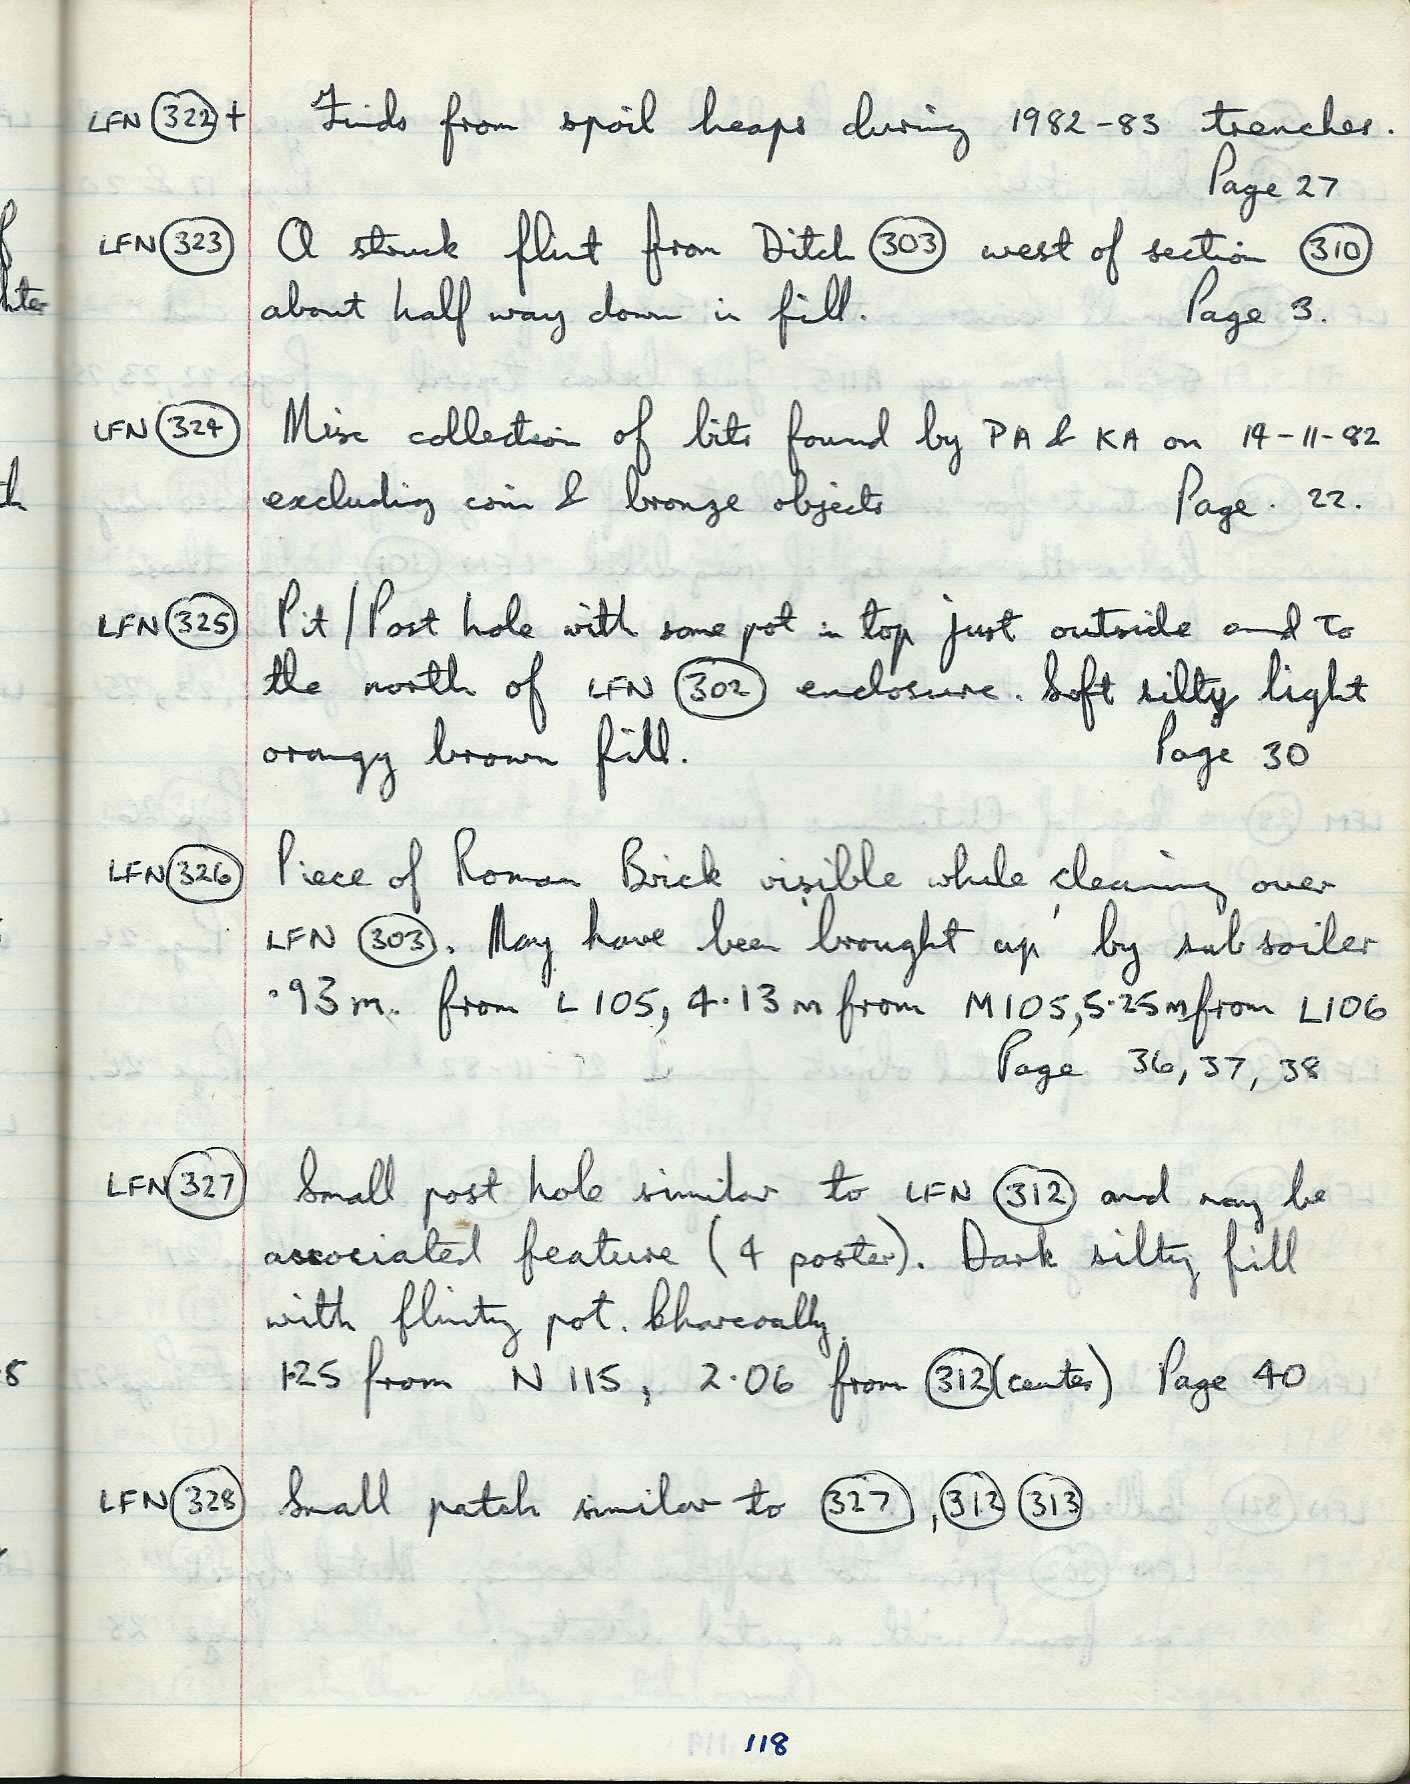 LFN 322 + Finds from spoil heaps during 1982-83 trenches.
Page 27
LFN 323 A struck flint from Ditch 303 west of section 310
about half way down in fill. Page 3.
LFN 324 Misc collection of bits found by PA & KA on 14-11-82
excluding coin & bronze objects Page . 22.
LFN 325 Pit/Post hole with some pot in top just outside and to
the north of LFN 302 enclosure. Soft silty light
orangy brown fill. Page 30
LFN 326 Piece of Roman Brick visible while cleaning over
LFN 303. May have been brought up by sub soiler
.93m. from L105, 4.13m from M105, 5.25m from L106
Page 36, 37, 38
LFN 327 Small post hole similar to LFN 312 and may be
associated feature (4 poster). Dark silty fill
with flinty pot. Charcoally.
1.25 from N 115, 2.06 from 312 (center) Page 40
LFN 328 Small patch similar to 327, 312 313
118